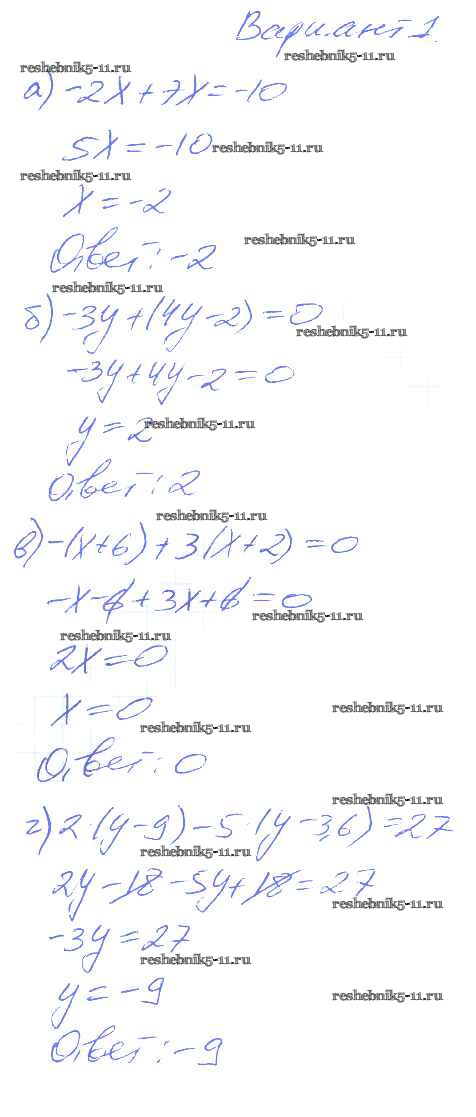 Вариант 1.
reshebnik5-11.ru
reshebnik5-11.ru
а) -2x+7x=-10
5x=-10
reshebnik5-11.ru
reshebnik5-11.ru
x=-2
reshebnik5-11.ru
Ответ: -2
reshebnik5-11.ru
б) -3y+(4y-2)=0
reshebnik5-11.ru
-3y+4y-2=0
y=2
reshebnik5-11.ru
Ответ: 2
reshebnik5-11.ru
в) -(x+6)+3(x+2)=0
-x-6+3x+6=0
reshebnik5-11.ru
reshebnik5-11.ru
2x=0
x=0
reshebnik5-11.ru
reshebnik5-11.ru
Ответ: 0
reshebnik5-11.ru
г) 2·(y-9)-5·(y-3,6)=27
reshebnik5-11.ru
2y-18-5y+18=27
reshebnik5-11.ru
-3y=27
reshebnik5-11.ru
y=-9
reshebnik5-11.ru
Ответ: -9